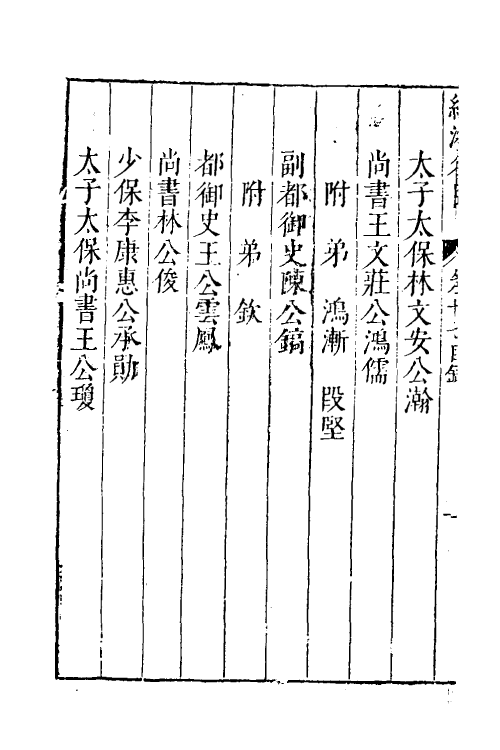 太子太保林文安公瀚
尚書王文莊公鴻儒
附弟鴻漸 段堅
副都御史陳公鎬
附弟欽
都御史王公雲鳳
尚書林公俊
少保李康惠公承勛
太子太保尚書王公瓊